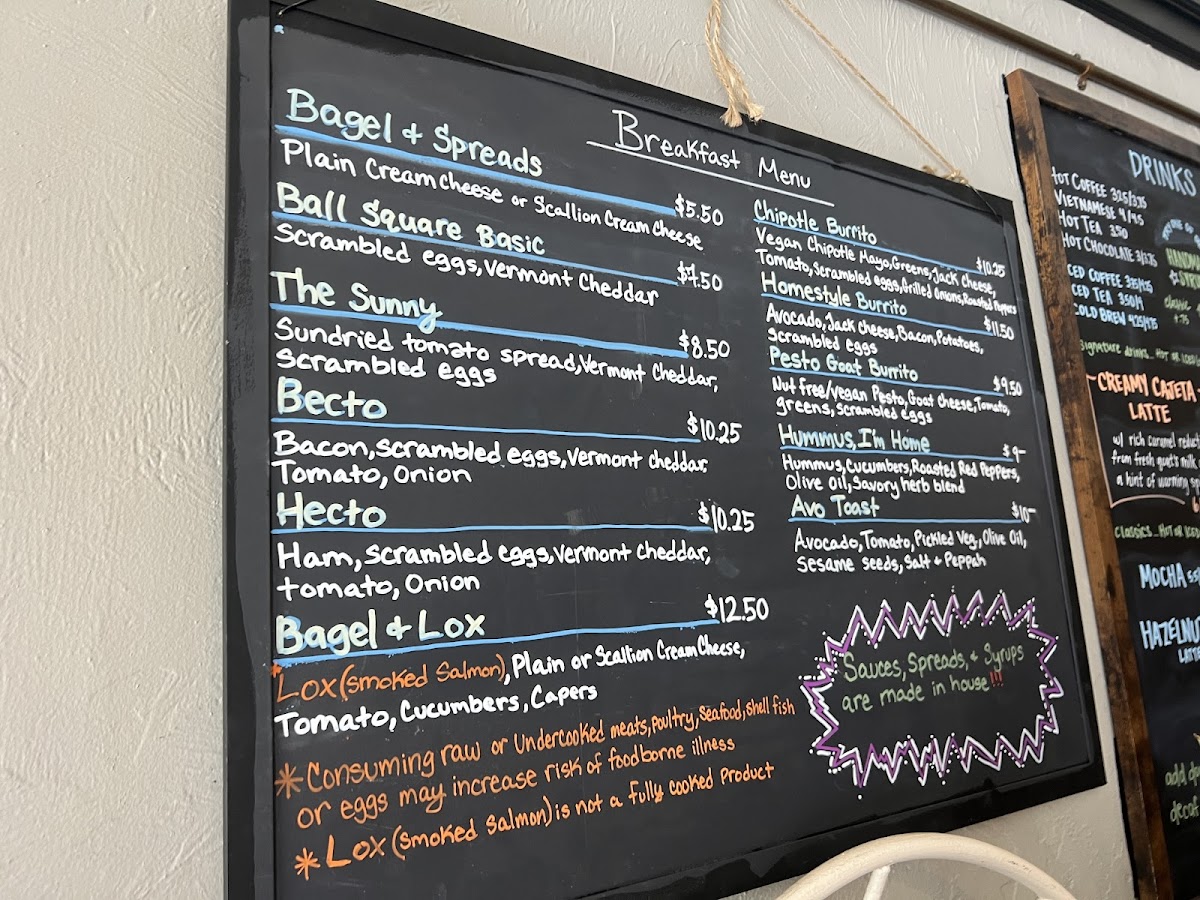 Breakfast Menu
Bagel & Spreads $5.50
Plain Cream Cheese or Scallion Cream Cheese
Ball Square Basic $7.50
Scrambled eggs, Vermont Cheddar
The Sunny $8.50
Sundried tomato spread, Vermont Cheddar,
Scrambled eggs
Becto $10.25
Bacon, scrambled eggs, Vermont cheddar,
Tomato, Onion
Hecto $10.25
Ham, scrambled eggs, Vermont cheddar,
tomato, Onion
Bagel & Lox $12.50
*Lox (smoked Salmon), Plain or Scallion Cream Cheese,
Tomato, Cucumbers, Capers
*Consuming raw or Undercooked meats, poultry, seafood, shell fish
or eggs may increase risk of foodborne illness
*Lox (smoked Salmon) is not a fully cooked Product
Chipotle Burrito $10.25
Vegan Chipotle Mayo, Greens, Jack cheese,
Tomato, Scrambled eggs, Grilled Onions, Roasted Peppers
Homestyle Burrito $11.50
Avocado, Jack cheese, Bacon, Potatoes,
Scrambled eggs
Pesto Goat Burrito $9.50
Nut free/vegan Pesto, Goat Cheese, Tomato,
greens, scrambled eggs
Hummus, I'm Home $9-
Hummus, Cucumbers, Roasted Red Peppers,
Olive oil, Savory herb blend
Avo Toast $10-
Avocado, Tomato, Pickled Veg, Olive Oil,
Sesame seeds, Salt & Peppah
Sauces, Spreads, & Syrups
are made in house!!!
DRINKS
Hot Coffee
Vietnamese 4/4.75
Hot Tea 3.50
Hot Chocolate
Iced Coffee
Iced Tea
Cold Brew 4.25/4.75
Signature drinks.. Hot or Iced
CREAMY CAJETA
LATTE
w/ rich caramel
from fresh goat's milk
a hint of warming
Classics... Hot or Iced
MOCHA
LATTE
add
decaf